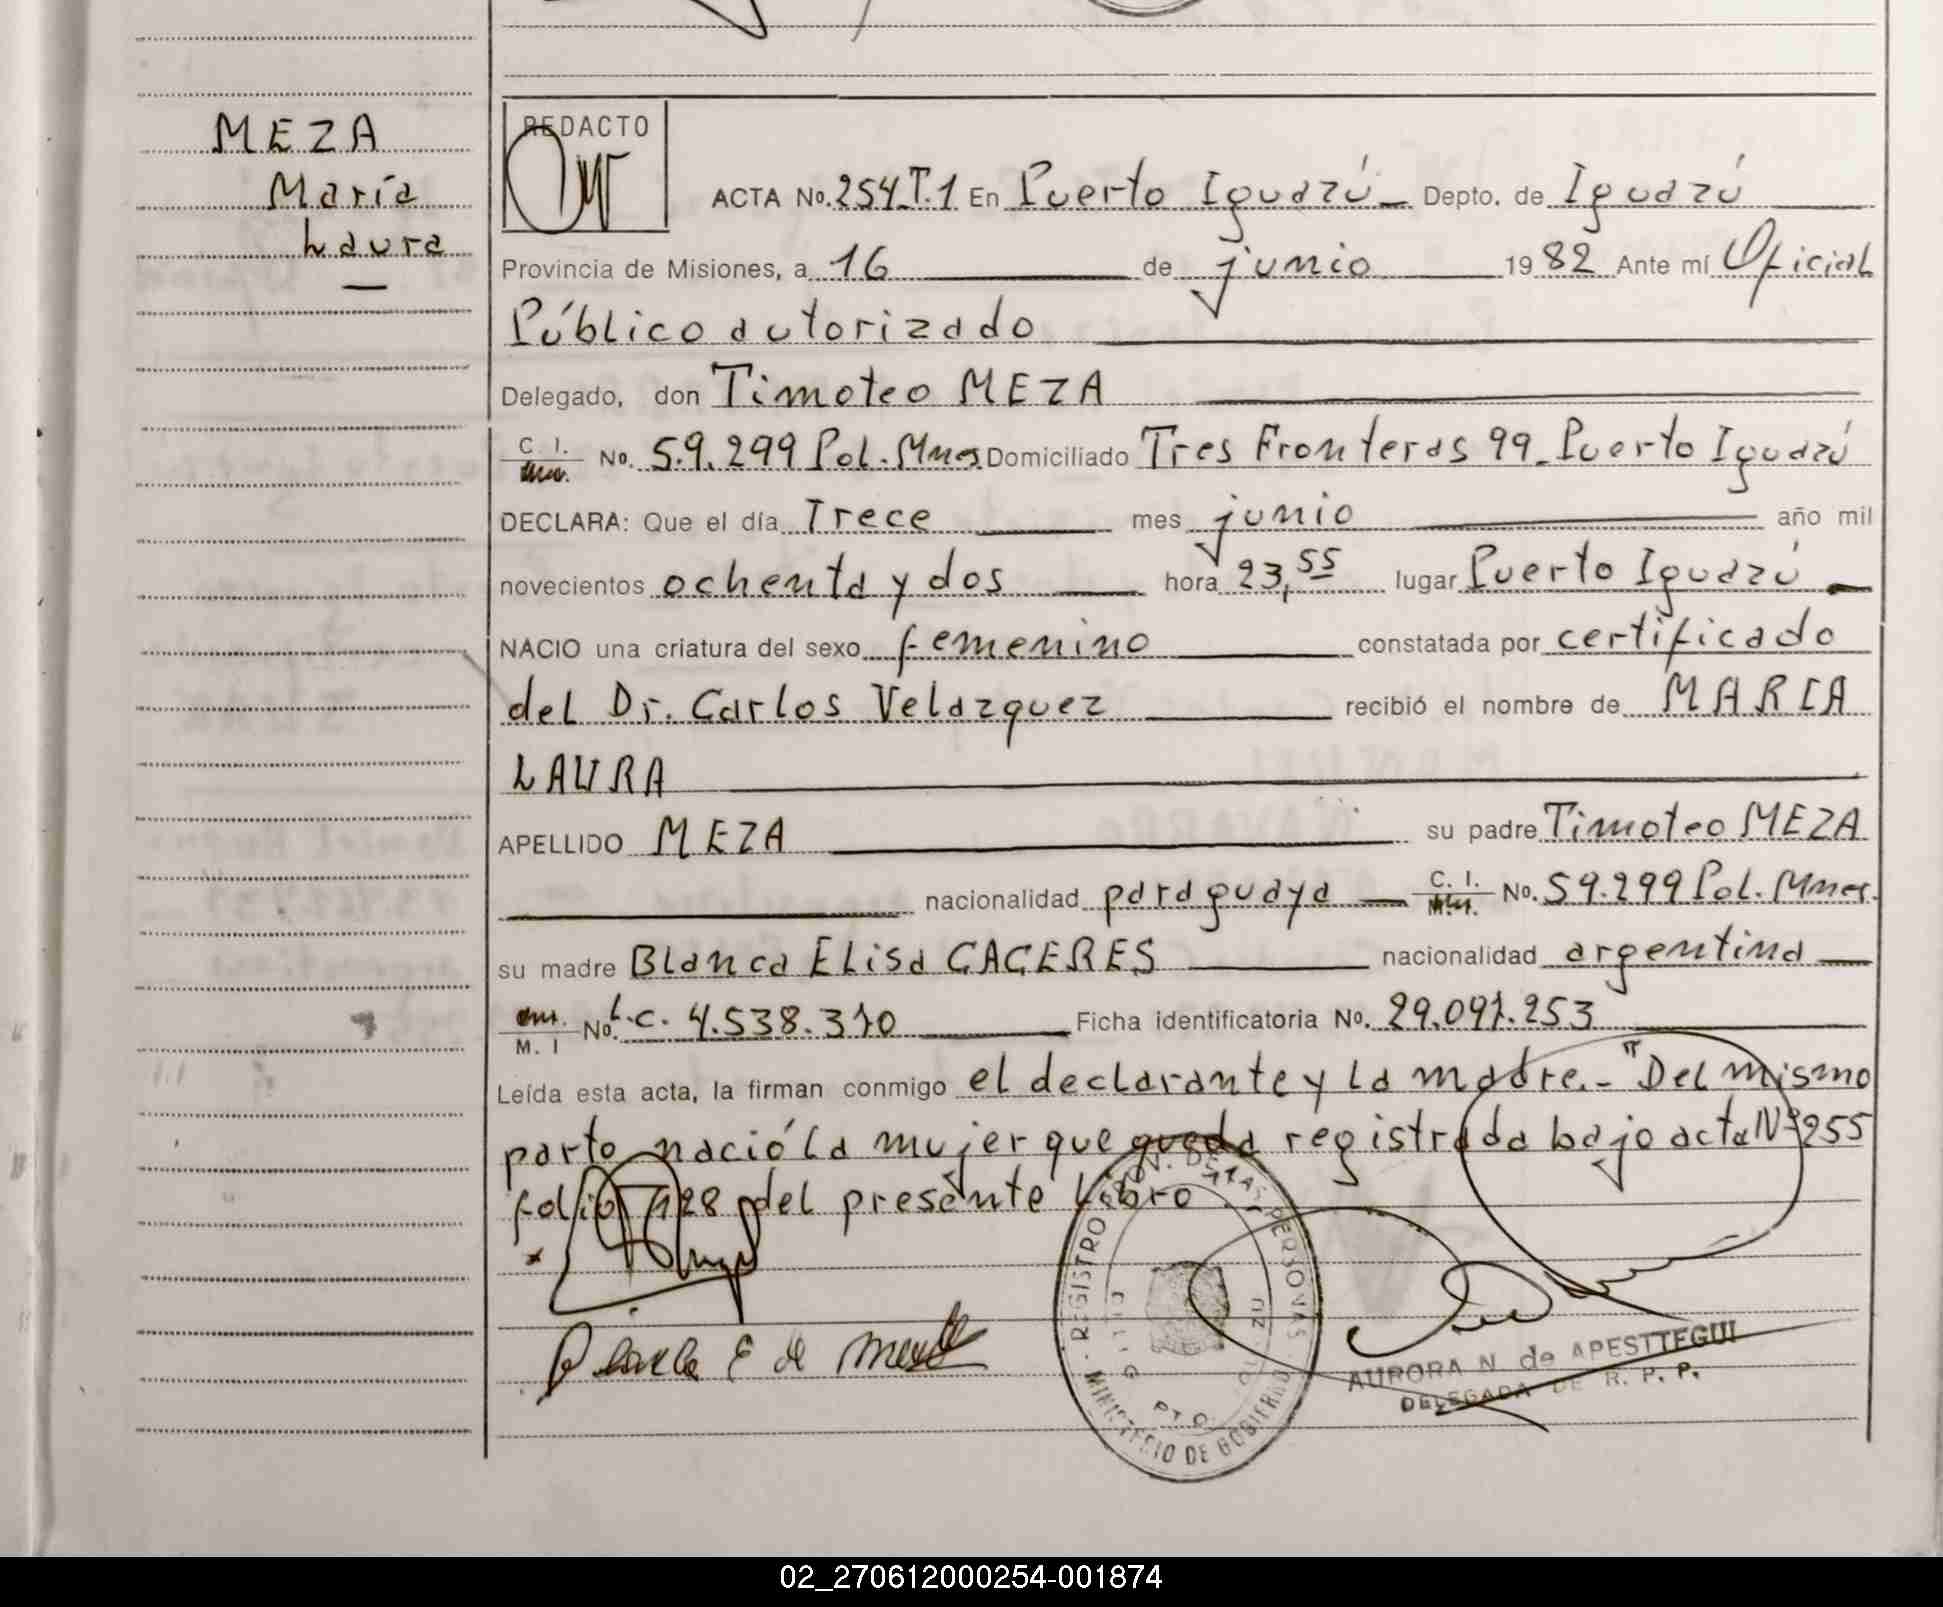 MEZA
María
Laura
REDACTO
ACTA No. 254.T.1 En Puerto Iguazú Depto. de Iguazú
Provincia de Misiones, a 16 de junio 1982 Ante mí Oficial
Público autorizado
Delegado, don Timoteo MEZA
C. I. No. 59.299 Pol. Mnes Domiciliado Tres Fronteras 99 - Puerto Iguazú
DECLARA: Que el día Trece mes junio año mil
novecientos ochenta y dos hora 23,55 lugar Puerto Iguazú
NACIO una criatura del sexo femenino constatada por certificado
del Dr. Carlos Velazquez recibió el nombre de MARIA
LAURA
APELLIDO MEZA su padre Timoteo MEZA
nacionalidad paraguaya C. I. No. 59.299 Pol. Mnes.
su madre Blanca Elisa CACERES nacionalidad argentina
M. I No. L.C. 4.538.310 Ficha identificatoria No. 29.091.253
Leída esta acta, la firman conmigo el declarante y la madre.- "Del mismo
parto nació la mujer que queda registrada bajo acta Nº 255
folio 128 del presente Libro
Blanca E de Meza
REGISTRO PROV. DE LAS PERSONAS
MINISTERIO DE GOBIERNO
PTO.
AURORA N. de APESTTEGUI
DELEGADA DE R. P. P.
02_270612000254-001874